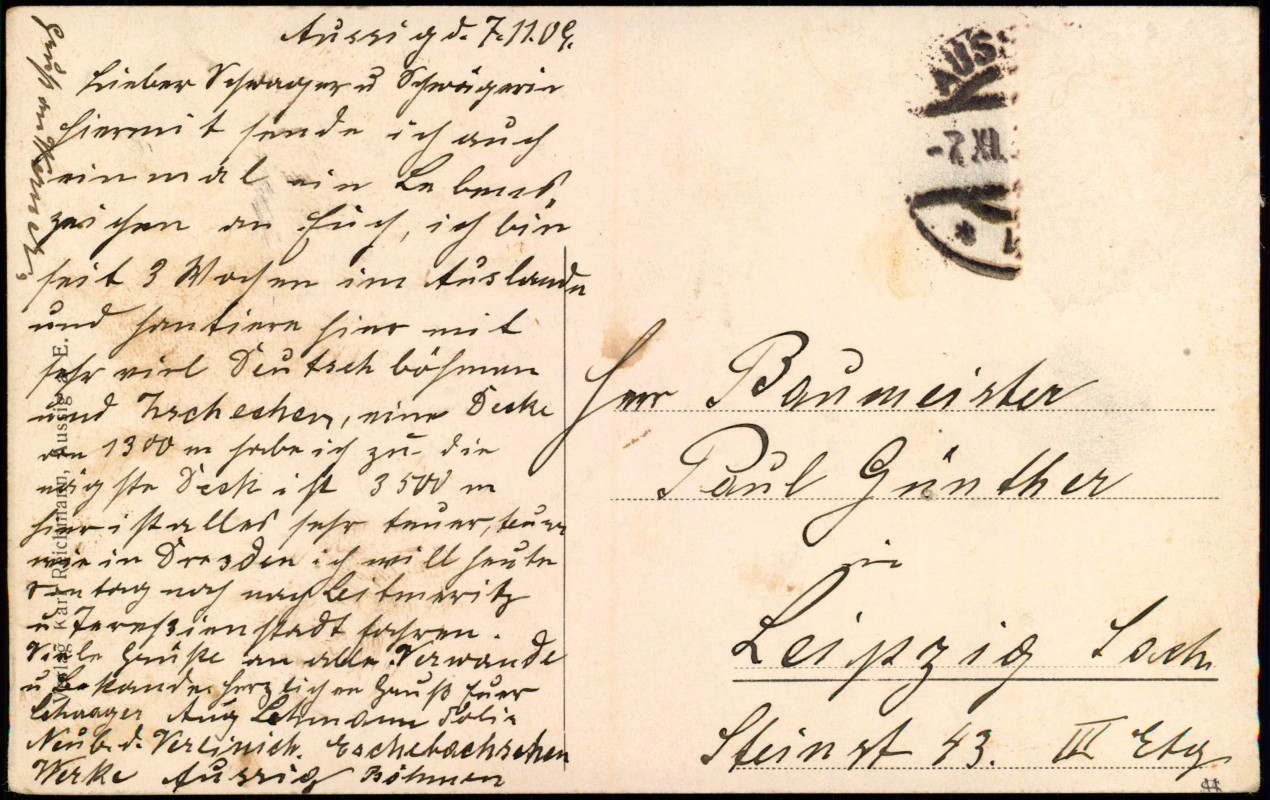 Aussig d. 7.11.09.
Lieber Schwager u Schwägerin
hiermit sende ich auch
einmal ein Lebens
zeichen an Euch, ich bin
seit 3 Wochen im Auslande
und hantiere hier mit
sehr viel Deutschböhmen
und Tschechen, eine Decke
von 1300 m habe ich zu. die
nägste Deck ist 3500 m
hier ist alles sehr teuer, teurer
wie in Dresden ich will heute
Sontag noch nach Leitmeritz
u Teresienstadt fahren.
Viele Grüße an alle Verwande
u Bekande. herzlichen Gruß Euer
Schwager Aug Lehmann
Neub. d. Vereinich. Eschebachschen
Werke Aussig Böhmen
Gruß an
Verlag Karl Reichmann, Aussig a. E.
AUSS
-7 XI.
Herr Baumeister
Paul Günther
in
Leipzig Sach.
Steinst 43. III Etg